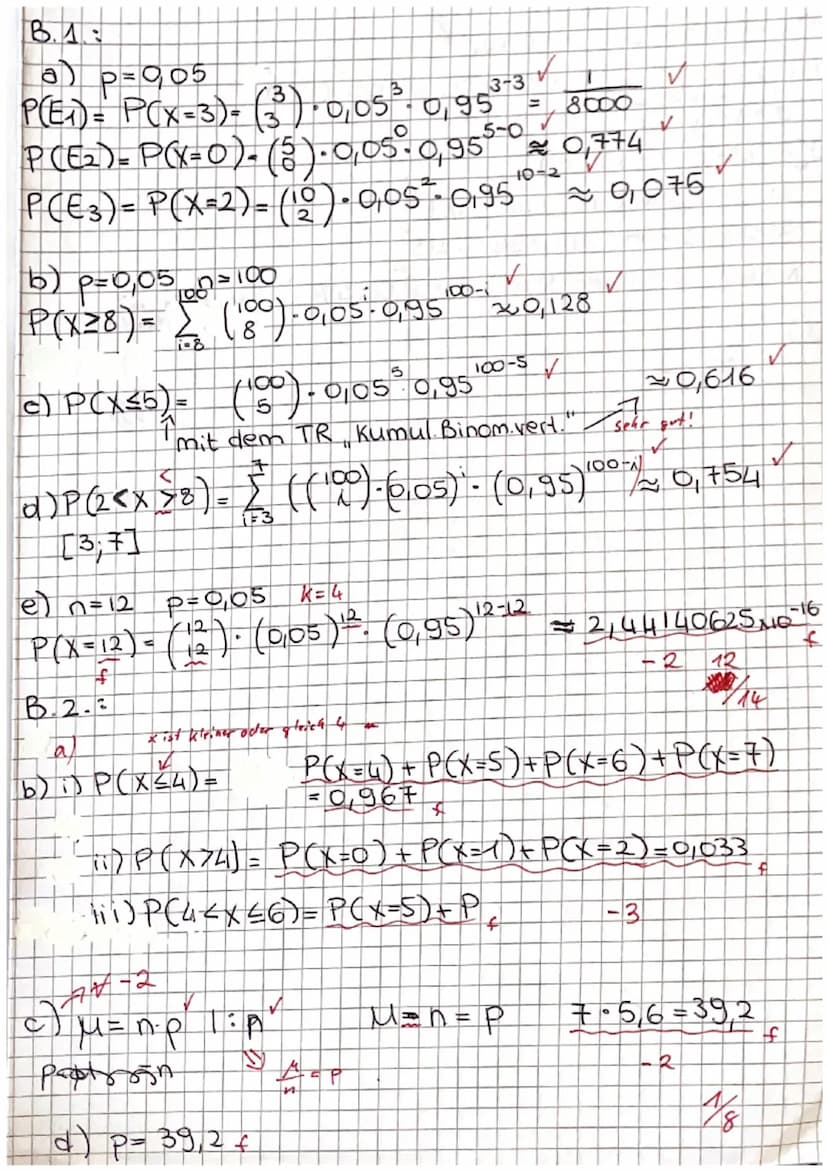 B.1.:
a) p=0,05
P(E1)= P(X=3)= (3 3)·0,05³·0,95³⁻³ ✓ = 1/8000 ✓
P(E2)= P(X=0)= (5 0)·0,05⁰·0,95⁵⁻⁰ ✓ ≈ 0,774 ✓
P(E3)= P(X=2)= (10 2)·0,05²·0,95¹⁰⁻² ✓ ≈ 0,075 ✓
b) p=0,05 n=100
P(X≥8)= 100 Σ i=8 (100 8)·0,05ⁱ·0,95¹⁰⁰⁻ⁱ ✓ ≈0,128 ✓
c) P(X≤5)= (100 5)·0,05⁵·0,95¹⁰⁰⁻⁵ ✓ ≈0,616 ✓
↑ mit dem TR „Kumul. Binom.vert." ↗ sehr gut!
<
d) P(2<X>8)= 7 Σ i=3 ((100 i)·(0,05)ⁱ·(0,95)¹⁰⁰⁻ⁱ) ✓ ≈ 0,754 ✓
[3;7]
e) n=12 p=0,05 k=4
P(X=12)= (12 12)·(0,05)¹²·(0,95)¹²⁻¹² ≈ 2,44140625x10⁻¹⁶ f
f -2 12
/14
B.2.:
a) x ist kleiner oder gleich 4
b) i) P(X≤4)= P(X=4)+P(X=5)+P(X=6)+P(X=7)
=0,967 f
ii) P(X>4)= P(X=0)+P(X=1)+P(X=2)=0,033 f
iii) P(4<X≤6)= P(X=5)+P f -3
-2
c) μ=n·p ✓ |:n ✓ M=n=p 7·5,6=39,2 f
⇓ μ/n=p -2
1/8
d) p=39,2 f